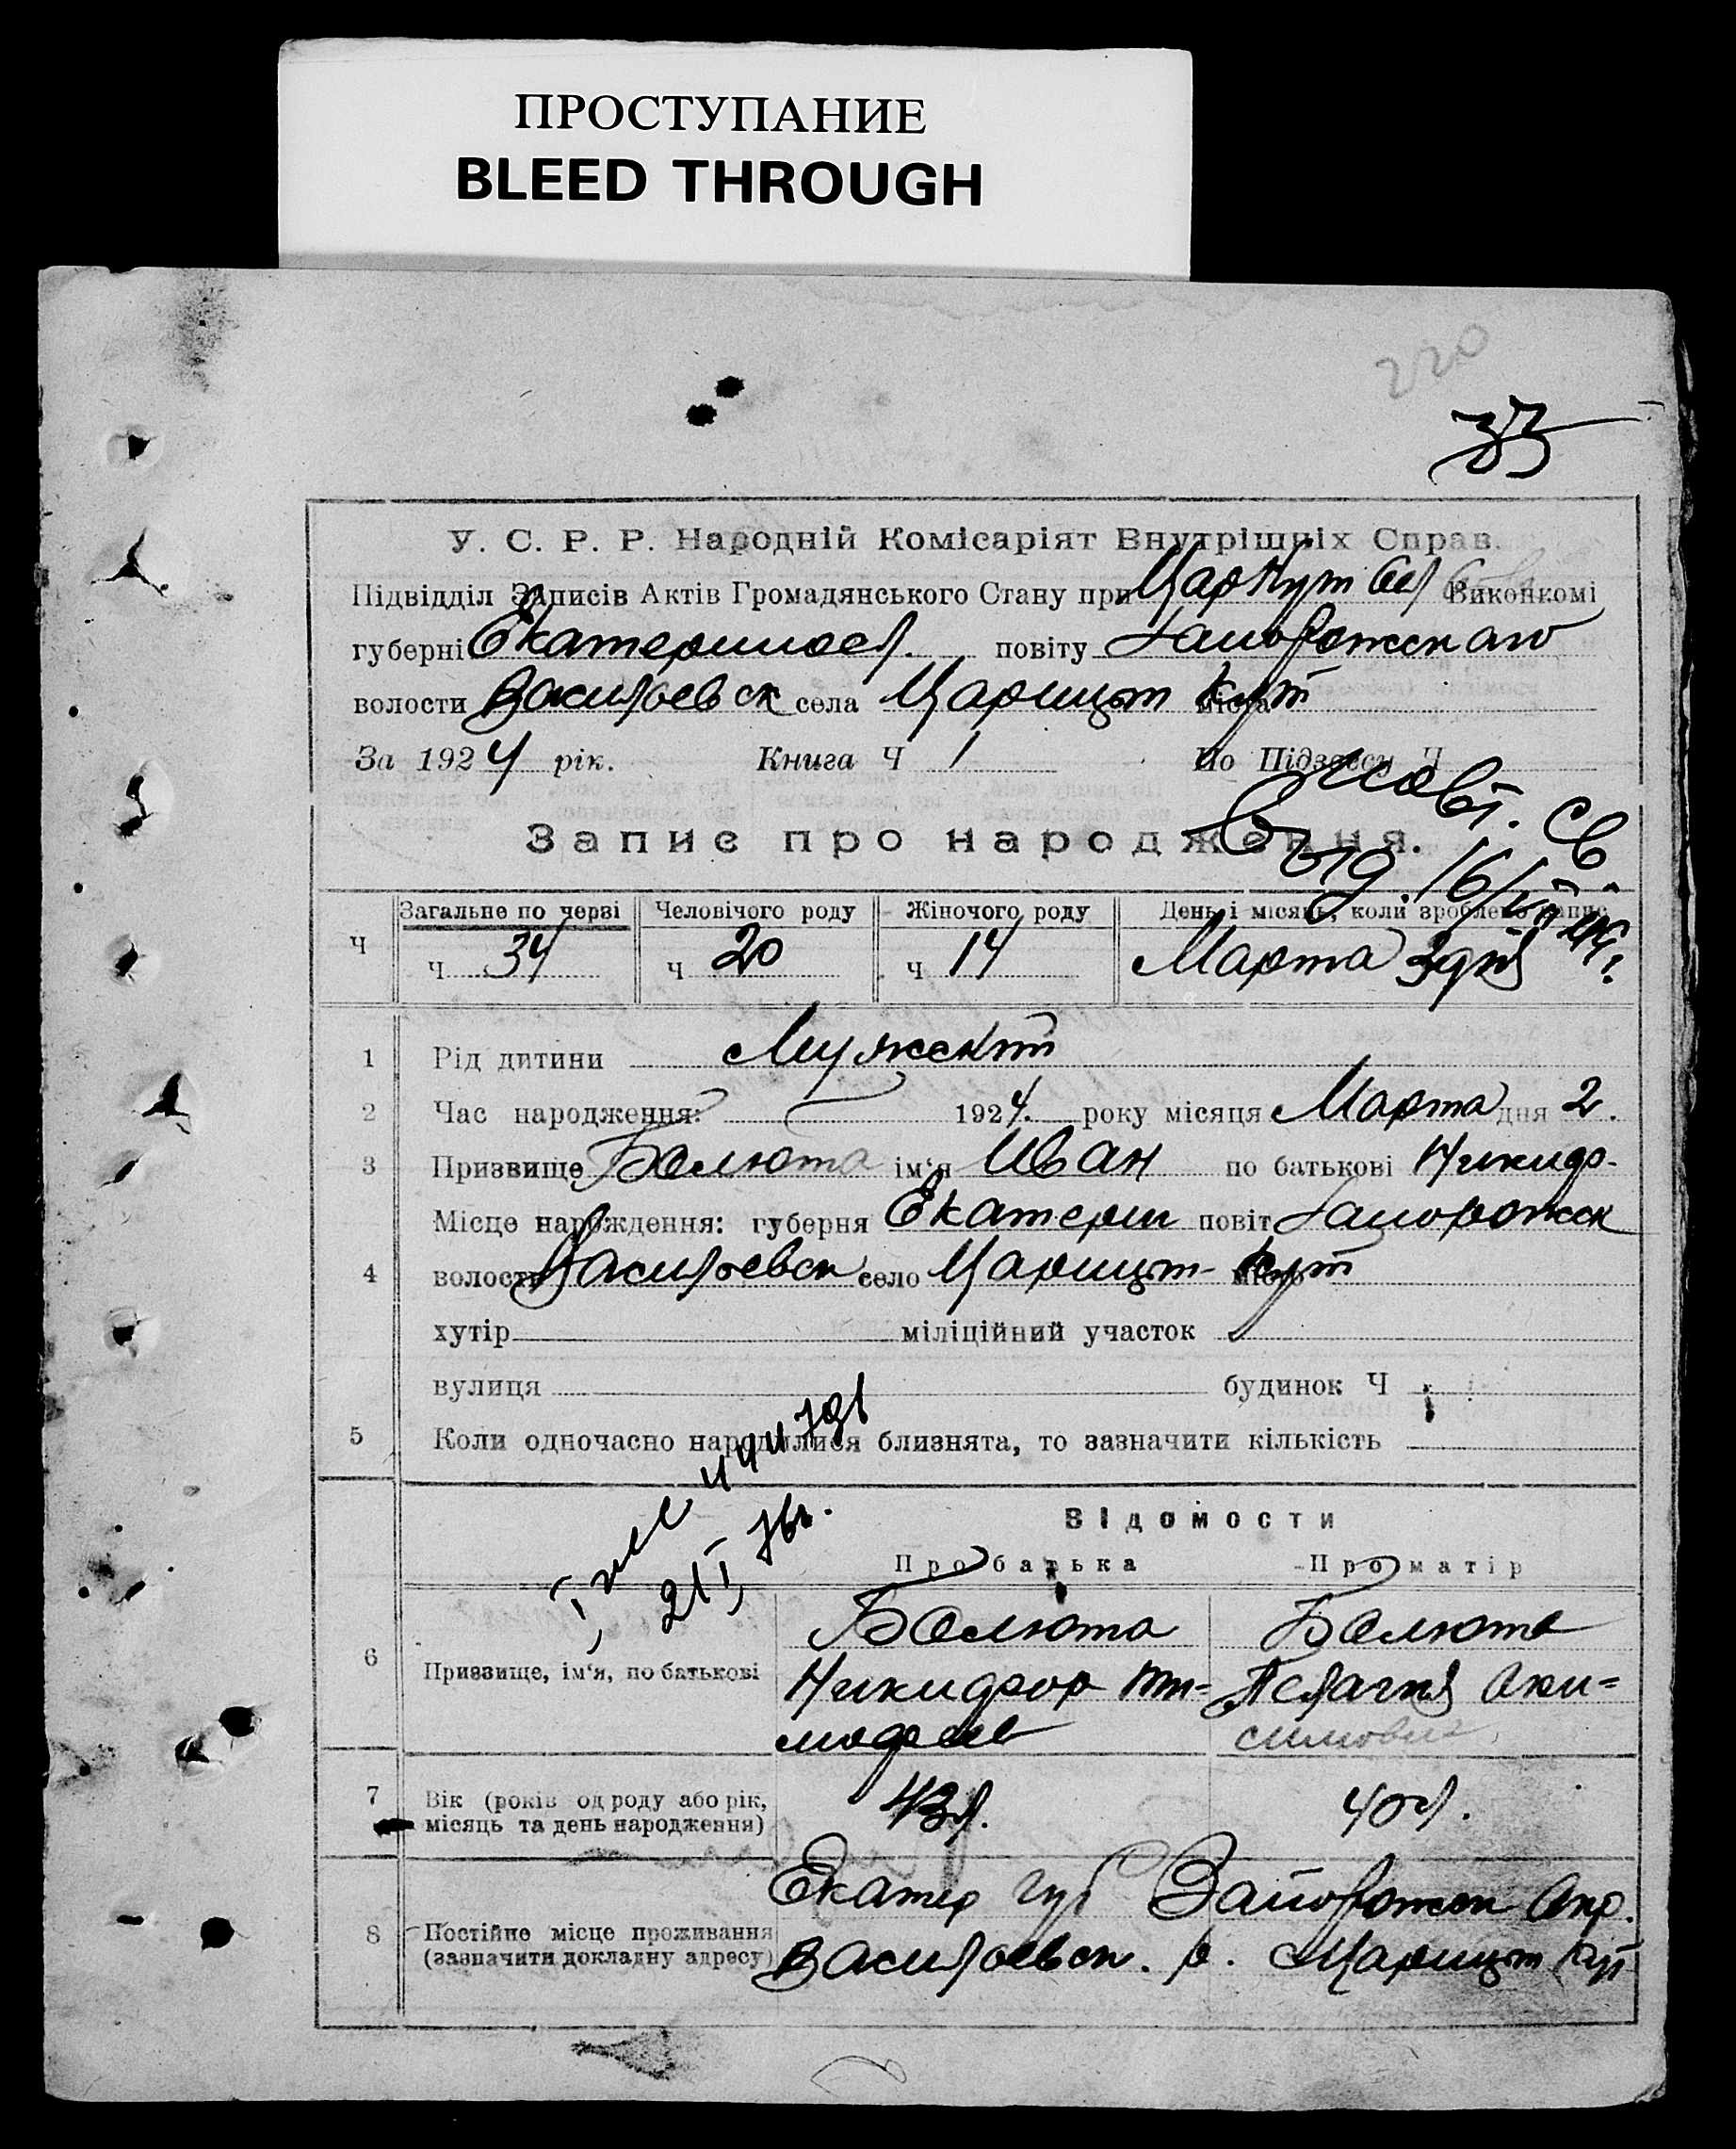 ПРОСТУПАНИЕ
BLEED THROUGH
220
33
У. С. Р. Р. Народній Комісаріят Внутрішніх Справ.
Підвідділ Записів Актів Громадянського Стану при ЦарКут Виконкомі
губерні Екатериносл. повіту Запорожскаго
волости Васильевск села Царицын Кут міста
За 1924 рік. Книга Ч 1 По Підзагсу Ч
Запис про народження.
Повт. св
Выд. 16/VII
Загальне по черзі Человічого роду Жіночого роду День і місяць, коли зроблено запис
Ч ч 34 ч 20 ч 14 Марта 3 дня
1 Рід дитини Мужскій
2 Час народження: 1924. року місяця Марта дня 2.
3 Призвище Балюта ім'я Иван по батькові Никифо-
Місце народження: губерня Екатерин повіт Запорожск
4 волость Васильевск село Царицын-Кут місто
хутір міліційний участок
вулиця будинок Ч
5 Коли одночасно народилися близнята, то зазначити кількість
Відомости
Про батька Про матір
Балюта Балюта
6 Призвище, ім'я, по батькові Никифор Ти- Пелагия Они-
мофеев симовна
7 Вік (років од роду або рік, 43 л. 40 л.
місяць та день народження)
Екатер губ Запорожск Окр.
8 Постійне місце проживання
(зазначити докладну адресу) Васильевск. р. Царицын Кут